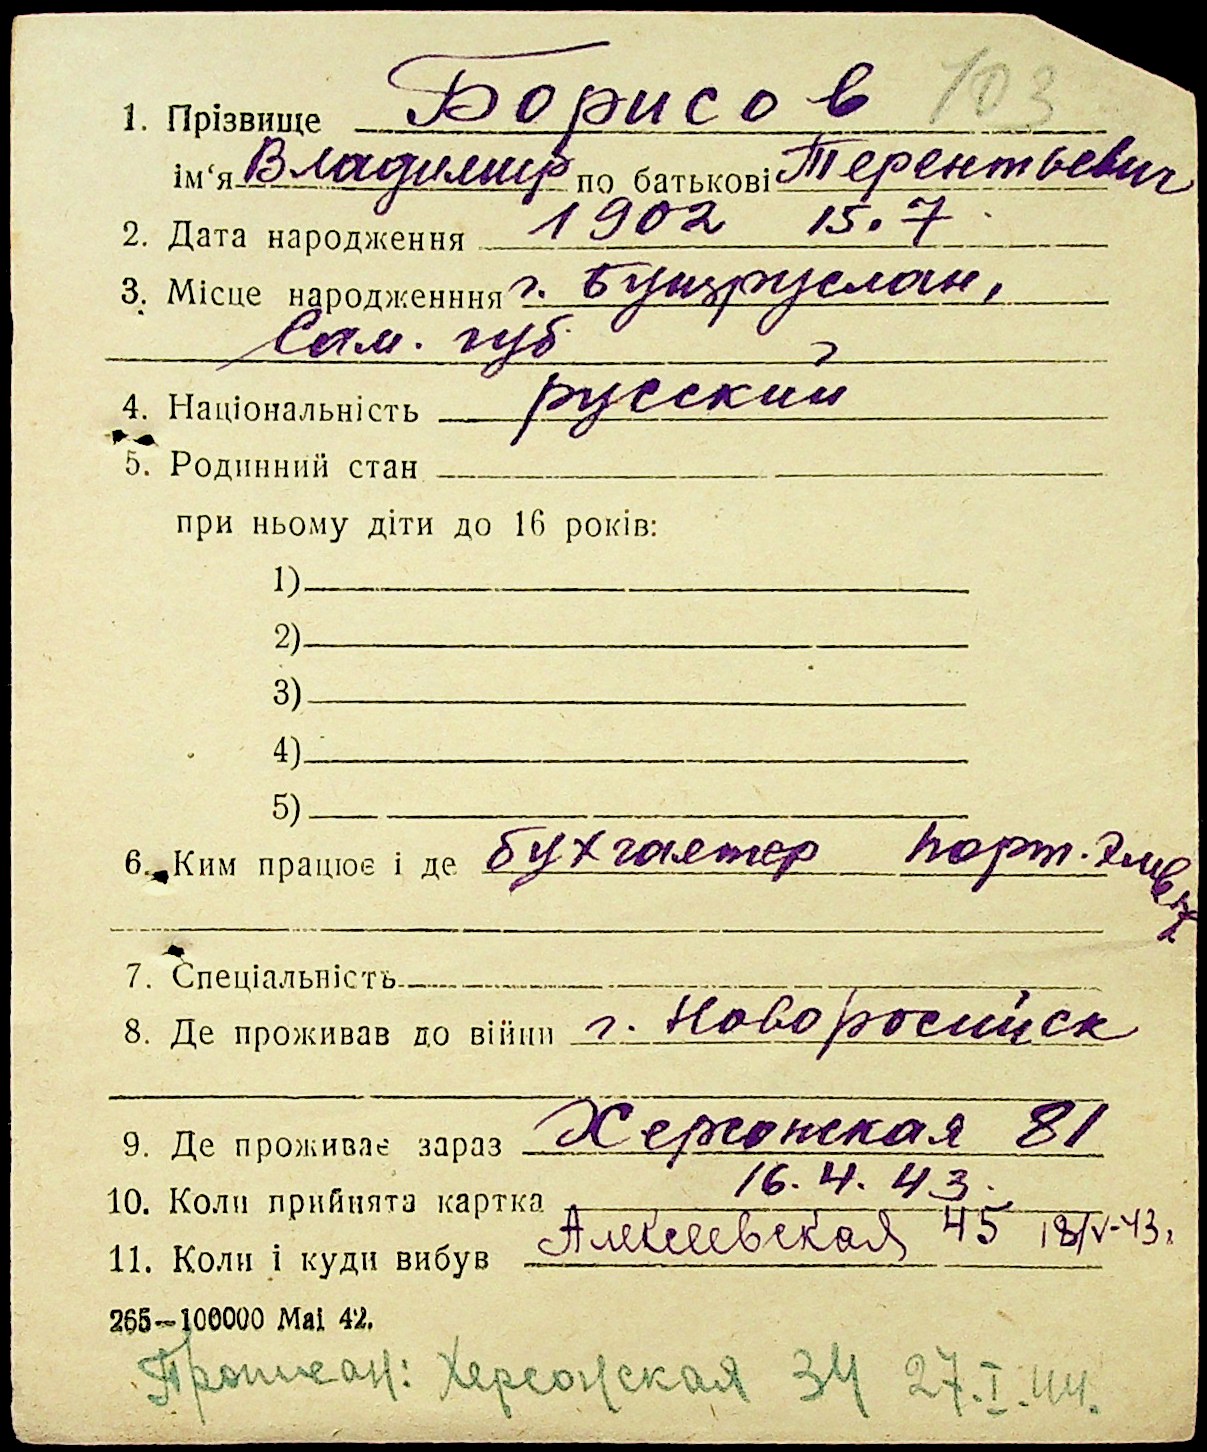 103
1. Прізвище Борисов
ім'я Владимир по батькові Терентьевич
2. Дата народження 1902 15.7
3. Місце народженння г. Бугуруслан,
Сам. губ.
4. Національність русский
5. Родинний стан
при ньому діти до 16 років:
1)
2)
3)
4)
5)
6. Ким працює і де бухгалтер порт.
7. Спеціальність
8. Де проживав до війни г. Новоросийск
9. Де проживає зараз Херсонская 81
10. Коли прийнята картка 16.4.43.
11. Коли і куди вибув Алексеевская 45 18/V-43г.
265—100000 Mai 42.
Прописан: Херсонская 34 27.I.44.